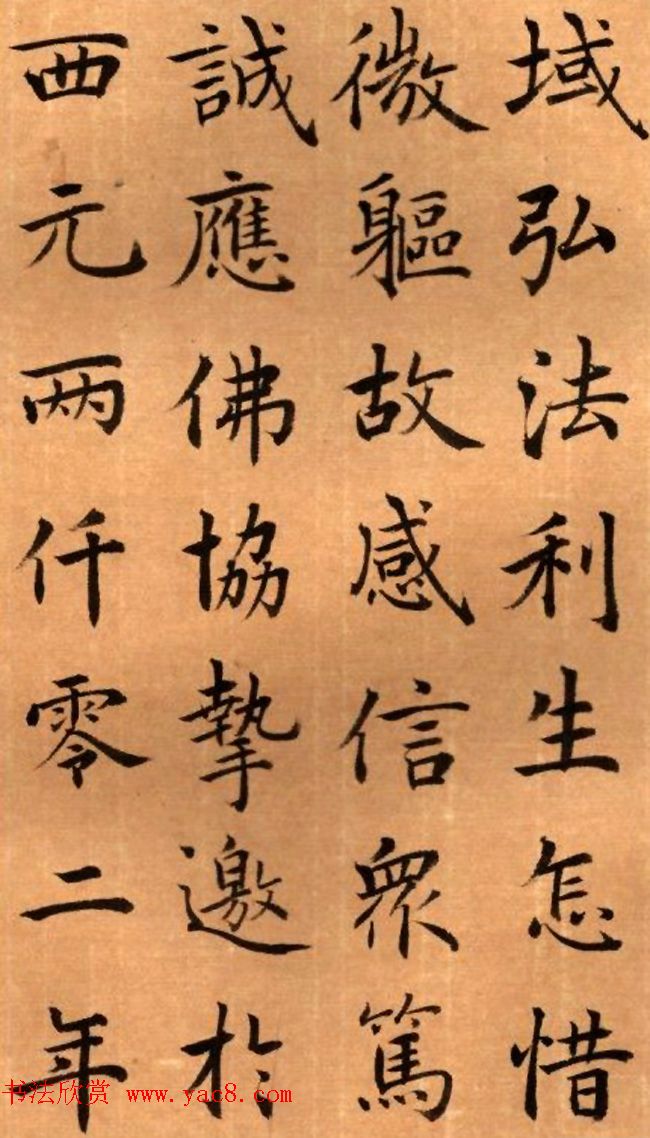 域弘法利生怎惜
微軀故感信衆篤
誠應佛協摯邀於
西元两仟零二年
书法欣赏 www.yac8.com